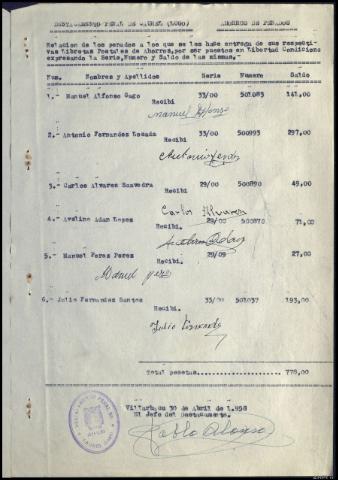 DESTACAMENTO PENAL DE (LUGO) AHORROS DE PENADOS
Relacion de los penados a los que se les hace entrega de sus respecti-
vas Libretas Postales de Ahorro, por ser puestos en Libertad Condicional
expresando la Serie, Numero y Saldo de las mismas.
Num. Nombres y Apellidos Serie Numero Saldo
1.- Manuel Alfonso Gago 33/00 501083 141,00
Recibi
Manuel Alfonso
2.- Antonio Fernandez Losada 33/00 500993 297,00
Recibi
Antonio Fernandez
3.- Carlos Alvarez Saavedra 29/00 500890 49,00
Recibi
Carlos Alvarez
4.- Avelino Adan Lopez 29/00 500870 71,00
Recibi.
5.- Manuel Perez Perez 29/09 27,00
Recibi.
Manuel Perez
6.- Julio Fernandez Santos 33/00 501037 193,00
Recibi.
Julio Fernandez
Total pesetas 778,00
30 de Abril de 1.956
El Jefe del Destacamento.
Pablo Alonso